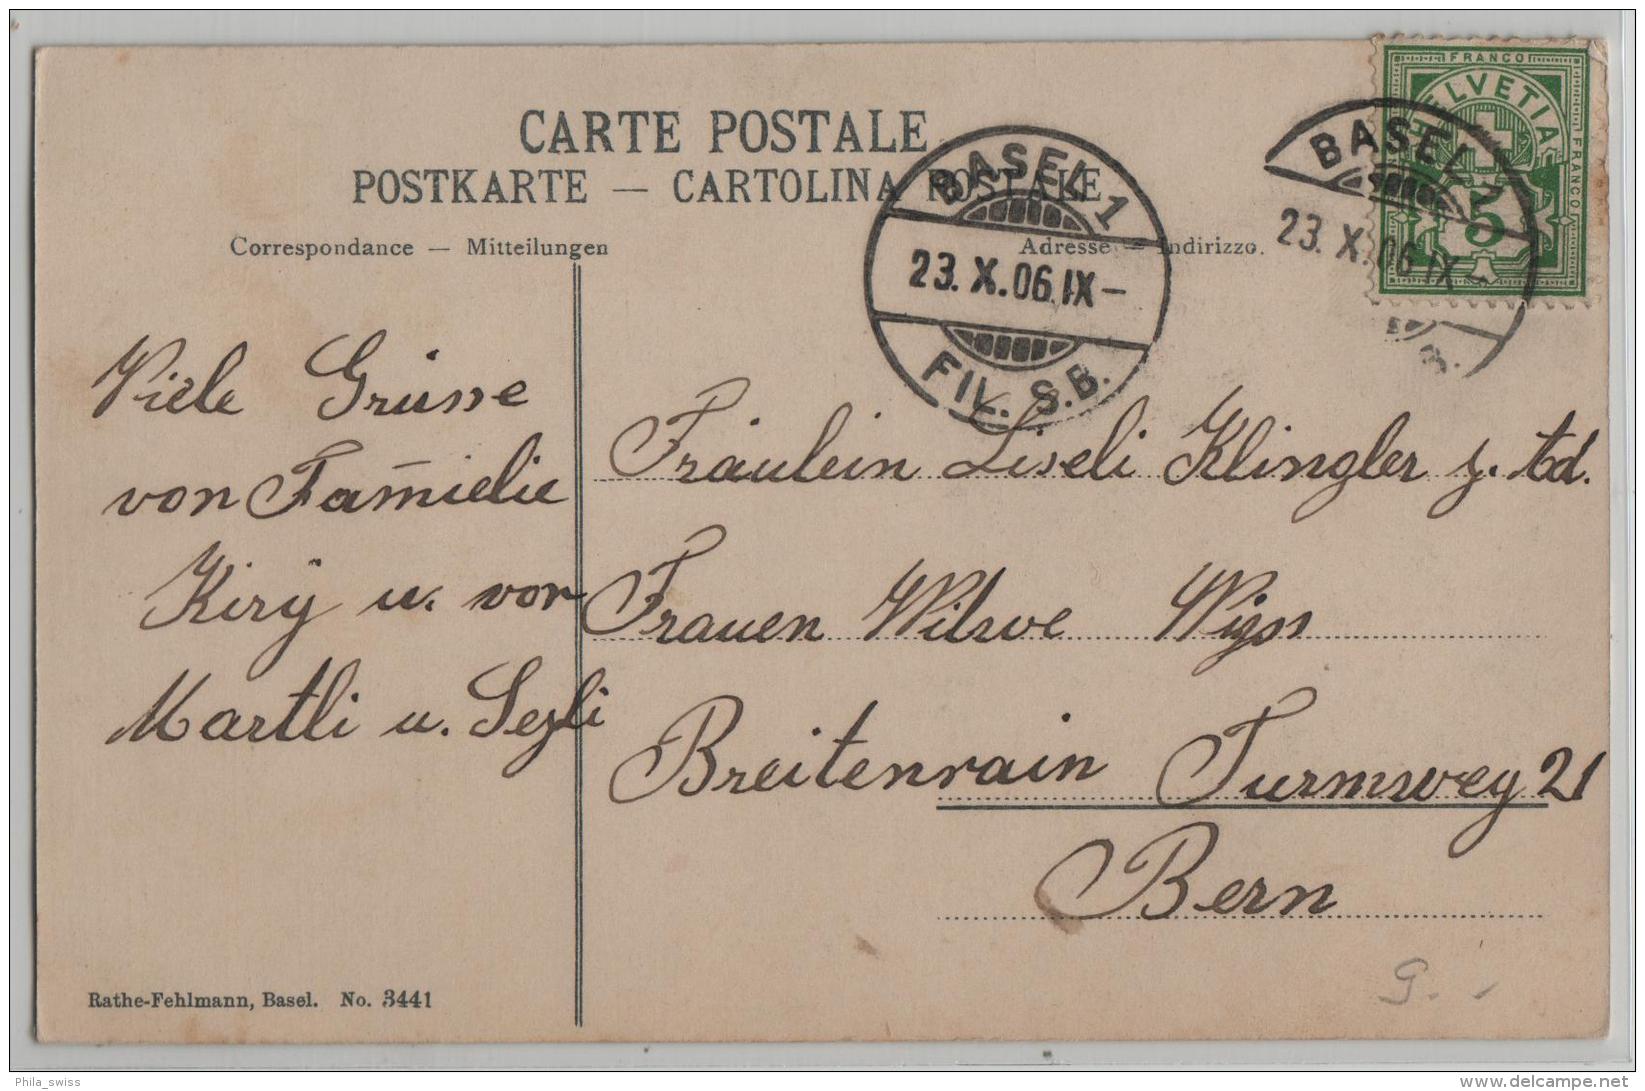 CARTE POSTALE
POSTKARTE — CARTOLINA POSTALE
Correspondance — Mitteilungen
Adresse — Indirizzo.
FRANCO
HELVETIA
FRANCO
5
BASEL 1
23. X. 06. IX –
FIL. S.B.
BASEL 1
23. X. 06. IX –
S.B.
Viele Grüsse
von Fam̅ielie
Kirÿ u. von
Martli u. Sezli
Fräulein Liseli Klingler z. Ad.
Frauen Witwe Wyss
Breitenrain Turmweg 21
Bern
Rathe-Fehlmann, Basel. No. 3441
G. -
Phila_swiss
www.delcampe.net